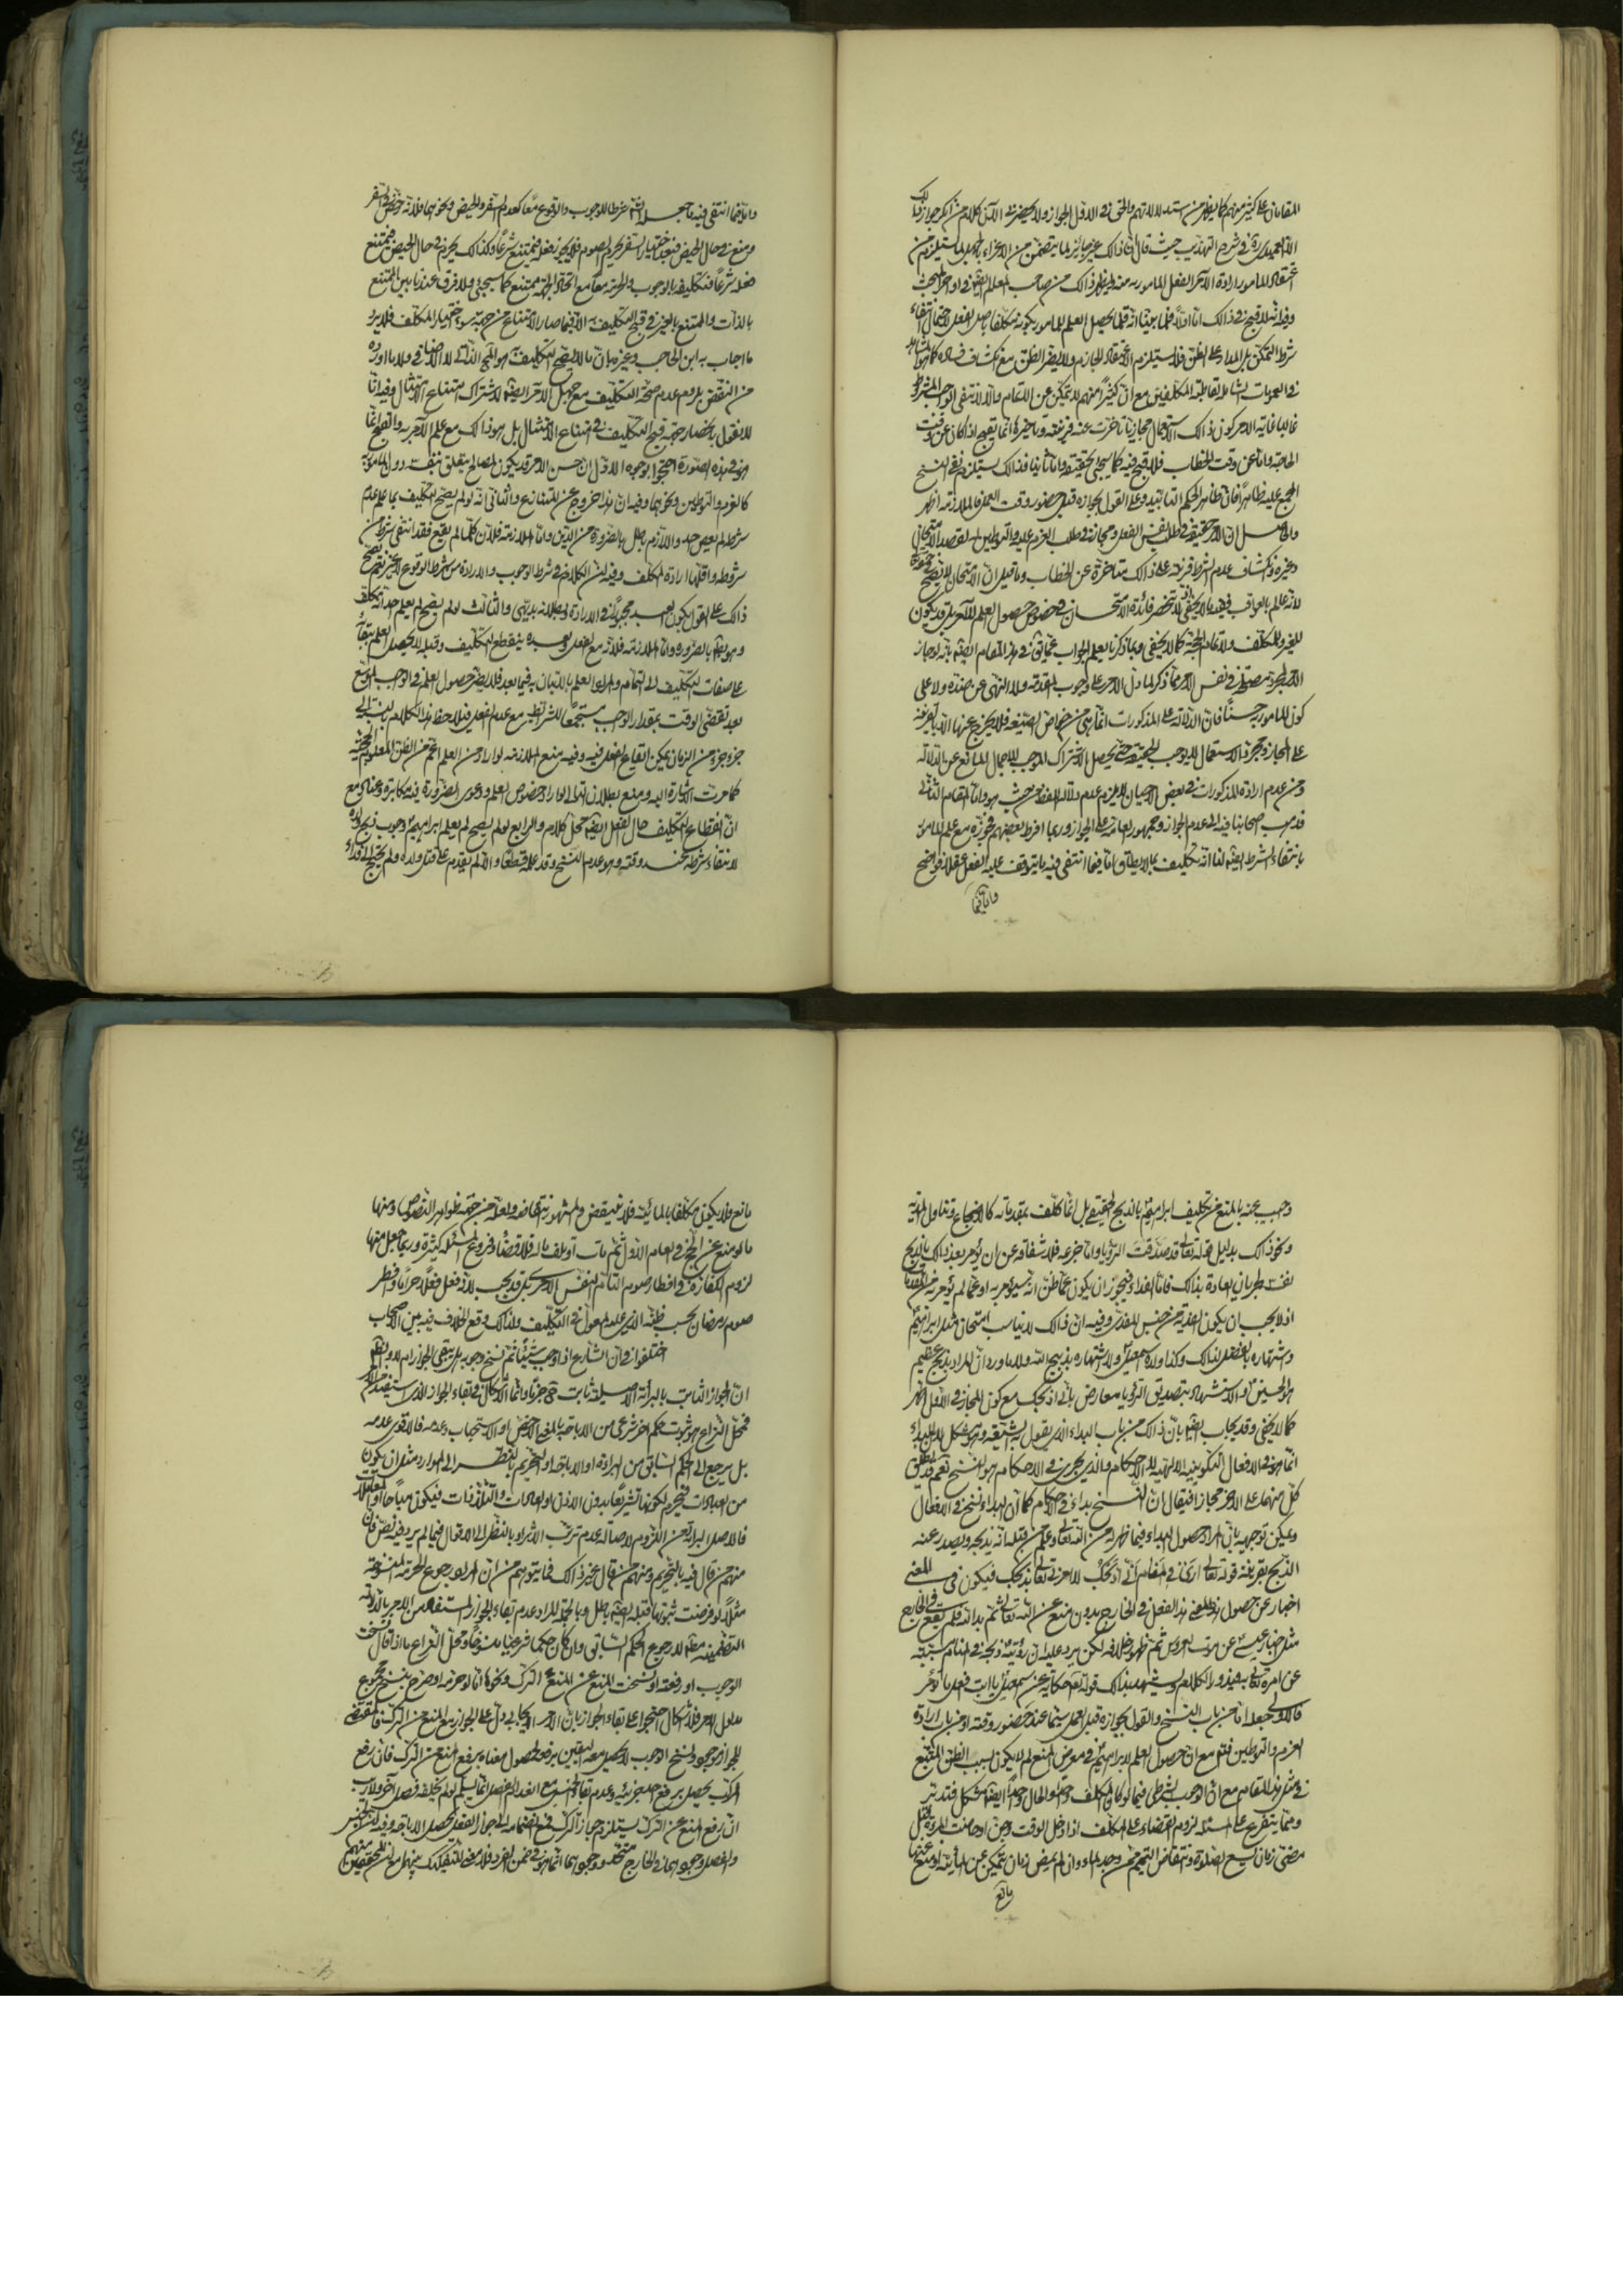 المقامان على كثير منهم كما يظهر من استدلالاتهم والحق في الاول الجواز ولا يحضرني الآن كلام من انكر جواز ذلك
الا العميدي ره في شرح التهذيب حيث قال ان ذلك غير جايز لما يتضمن من الاغراء بالجهل لما يستلزم من
اعتقاد المامور ارادة الآمر الفعل المامور به منه ويظهر ذلك من صاحب المعالم ايضا في اواخر المبحث
وفيه انه لا قبح في ذلك اما اولا فلما بينا انه قلما يحصل العلم للمامور بكونه مكلفا باصل الفعل لاحتمال انتفاء
شرط التمكن بل المدار على الظن فلا يستلزم الاعتقاد الجازم ولا يضر الظن مع انكشاف فساده كما هو المشاهد
في العمومات الشاملة لقاطبة المكلفين مع ان كثيرا منهم لا يتمكن عن الاتمام والا لانتفى الواجب المشروط
غالبا غاية الامر كون ذلك استعمالا مجازيا تاخرت عنه قرينته وتاخيرها انما يقبح اذا كان عن وقت
الحاجة واما عن وقت الخطاب فلا قبح فيه كما سيجئ تحقيقه واما ثانيا فذلك يستلزم نفي النسخ
المجمع عليه ظاهرا فان ظاهر الحكم التابيد وعلى القول بجوازه قبل حضور وقت العمل فالملازمة اظهر
والحاصل ان الامر حقيقة في طلب نفس الفعل ومجاز في طلب العزم عليه والتوطين له لقصد الامتحان
وغيره وانكشاف عدم الشرط قرينة على ذلك متاخرة عن الخطاب وما قيل ان الامتحان لا يصح في حقه تعالى
لانه عالم بالعواقب ففيه ما لا يخفى اذ لا تنحصر فائدة الامتحان في خصوص حصول العلم للآمر بل قد يكون
للغير وللمكلف ولاتمام الحجة كما لا يخفى وبما ذكرنا يعلم الجواب عما يقال في هذا المقام ايضا بانه لو جاز
الامر لمجرد مصلحة في نفس الامر كما ذكر لما دل الامر على وجوب المقدمة ولا النهي عن ضده ولا على
كون المامور به حسنا فان الدلالة على المذكورات انما هي من خواص الصيغة فلا يخرج عنها الا بالقرينة
على المجاز ومجرد الاستعمال لا يوجب الحقيقة حتى يحصل الاشتراك الموجب للاجمال المانع عن الدلالة
ومن عدم ارادة المذكورات في بعض الاحيان لا يلزم عدم دلالة اللفظ من حيث هو واما المقام الثاني
فذهب اصحابنا فيه الى عدم الجواز وجمهور العامة على الجواز وربما افرط بعضهم فجوزه مع علم المامور
بانتفاء الشرط ايضا لنا انه تكليف بما لا يطاق اما فيما انتفى فيه ما يتوقف عليه الفعل عقلا فواضح
واما فيما
واما فيما انتفى فيه ما جعله الله شرطا للوجوب والوقوع معا كعدم السفر والحيض ونحوهما فلانه رخص في السفر
ومنع في حال الحيض فبعد اختيار السفر يحرم الصوم فلا يجوز فعله فيمتنع شرعا وكذلك يحرم في حال الحيض فيمتنع
فعله شرعا فتكليفه بالوجوب والحرمة معا مع اتحاد الجهة ممتنع كما سيجئ ولا فرق عندنا بين الممتنع
بالذات والممتنع بالغير في قبح التكليف به الا فيما صار الامتناع من جهة سوء اختيار المكلف فلا يرد
ما اجاب به ابن الحاجب وغيره بان ما لا يصح التكليف به هو المحال الذاتي لا الاضافي ولا ما اورده
من النقض بلزوم عدم صحة التكليف مع جهل الآمر ايضا لاشتراك امتناع الامتثال وفيه انا
لا نقول بانحصار جهة قبح التكليف في امتناع الامتثال بل هو ذلك مع علم الآمر به والقبح انما
هو في هذه الصورة احتجوا بوجوه الاول ان حسن الامر قد يكون لمصالح يتعلق بنفسه دون المامور به
كالعزم والتوطين ونحوهما وفيه ان هذا خروج عن المتنازع والثاني انه لو لم يصح التكليف بما علم عدم
شرطه لم يعص احد واللازم باطل بالضرورة من الدين واما الملازمة فلان كلما لم يقع فقد انتفى شرط من
شروطه واقلها ارادة المكلف وفيه ان الكلام في شرط الوجوب والارادة من شرط الوقوع لا غير نعم يصح
ذلك على القول بكون العبد مجبورا في الارادة وبطلانه بديهي والثالث لو لم يصح لم يعلم احد انه مكلف
وهو باطل بالضرورة واما الملازمة فلانه مع الفعل وبعده ينقطع التكليف وقبله لا يحصل العلم ببقائه
على صفات التكليف الى التمام والمراد العلم بالاتيان به فيما بعد فلا يضر حصول العلم في الواجب الموسع
بعد تقضي الوقت بمقدار الواجب مستجمعا للشرائط مع عدم الفعل فيلاحظ هذا الكلام بالنسبة الى
جزء جزء من الزمان يمكن ايقاع الفعل فيه وفيه منع الملازمة لو اراد من العلم اعم من الظن المعلوم الحجية
كما مرت الاشارة اليه ومنع بطلان التالي لو اراد خصوص العلم ودعوى الضرورة فيه مكابرة وعناد مع
ان انقطاع التكليف حال الفعل ايضا محل كلام والرابع لو لم يصح لم يعلم ابراهيم وجوب ذبح ولده
لانتفاء شرطه عند وقته وهو عدم النسخ وقد علمه قطعا والا لم يقدم على قتل ولده ولم يحتج الى فداء
وجيب عنه بالمنع عن تكليف ابراهيم بالذبح الحقيقي بل انما كلف بمقدماته كالاضجاع وتناول المدية
ونحو ذلك بدليل قوله تعالى قد صدقت الرؤيا واما جزعه فلاشفاقه عن ان يؤمر بعد ذلك بالذبح
نفسه لجريان العادة بذلك واما الفداء فيجوز ان يكون عما ظن انه سيؤمر به او عما لم يؤمر به من المقدمات
اذ لا يجب ان يكون الفدية من جنس المفدى وفيه ان ذلك لا يناسب امتحان مثل ابراهيم
واشتهاره بالفضل لذلك وكذا ولده اسمعيل ولاشتهاره بذبيح الله ولا ما ورد ان المراد بذبح عظيم
هو الحسين والاستشهاد بتصديق الرؤيا معارض باني اذبحك مع كون المجاز في الاول اظهر
كما لا يخفى وقد يجاب ايضا بان ذلك من باب البداء الذي يقول به الشيعة وهو مشكل لان البداء
انما هو في الافعال التكوينية الالهية لا الاحكام والذي يجري في الاحكام هو النسخ نعم قد يطلق
كل منهما على الاخر مجازا فيقال ان النسخ بداء في الاحكام كما ان البداء نسخ في الافعال
ويمكن توجيهه بان المراد حصول البداء فيما ظهر له من الله تعالى وعلم من قبله انه يذبحه ويصدر عنه
الذبح بقرينة قوله تعالى ارى في المنام اني اذبحك لا امرني تعالى بذبحك فيكون في المعنى
اخبارا عن حصول هذا الفعل في الخارج بدون منع عن الله تعالى ثم بدا لله فلم يقع في الخارج
مثل اخبار عيسى عن موت العروس ثم ظهور خلافه لكن يرد عليه ان رؤيته ذبحه في المنام مسببة
عن امره تعالى به فيدور الكلام ويشهد بذلك قوله تعالى حكاية عن اسمعيل يا ابت افعل ما تؤمر
فالاولى جعله اما من باب النسخ والقول بجوازه قبل العمل سيما عند حضور وقته او من باب ارادة
العزم والتوطين فتم مع ان حصول العلم لابراهيم في معرض المنع لم لا يكون بسبب الظن المتبع
في مثل هذا المقام مع ان الوجوب الشرطي فيما لو كان المكلف واحدا والحال واحدا ايضا مشكل فتدبر
ومما يتفرع على المسئلة لزوم القضاء على المكلف اذا دخل الوقت وجن او حاضت المراة قبل
مضي زمان يسع الصلوة وانتقاض التيمم ممن وجد الماء وان لم يمض زمان يتمكن عن المائية او منع عنها
مانع
مانع فلا يكون مكلفا بالمائية فلا ينتقض والمشهور انتقاضه ولعله من جهة ظواهر النصوص ومنها
ما لو منع عن الحج في العام الاول ثم مات او تلف ماله فلا قضاء وفروع المسئلة كثيرة وربما جعل منها
لزوم الكفارة في افطار صوم التام لنفس الامر بل قد يجب لانه فعل فعلا حراما وافطر
صوم رمضان بحسب ظنه الذي عليه المعول في التكليف ولذلك وقع الخلاف فيه بين الاصحاب
اختلفوا في ان الشارع اذا اوجب شيئا ثم نسخ وجوبه هل يبقى الجواز ام لا والظاهر
ان الجواز الثابت بالبراءة الاصلية ثابت جزما وانما الاشكال في بقاء الجواز الذي استفيد من الامر
فمحل النزاع هو ثبوت حكم اخر شرعي من الاباحة بالمعنى الاخص او الاستحباب وعدمه فالاقوى عدمه
بل يرجع الى الحكم السابق من البراءة او الاباحة او التحريم بالنظر الى الموارد مثل ان يكون
من العبادات فيحرم لكونها تشريعا بدون الاذن او العادات والتلذذات فيكون مباحا او المعاملات
فالاصل البراءة من اللزوم لاصالة عدم ترتب الاثر او بالنظر الى الاقوال فيما لم يرد فيه نص فان
منهم من قال فيه بالتحريم ومنهم من قال غير ذلك فما يتوهم من ان المراد رجوع الحرمة المنسوخة
مثلا لو فرضت ثبوتها قبله ايضا باطل وبالجملة المراد عدم بقاء الجواز المستفاد من الامر بالدلالة
التضمنية مثلا لا رجوع الحكم السابق وان كان حكما شرعيا منسوخا ومحل النزاع ما اذا قال نسخت
الوجوب او رفعته او نسخت المنع عن الترك ونحوها اما لو حرمه او صرح بنسخ مجموع
مدلول الامر فلا اشكال احتجوا على بقاء الجواز بان الامر الايجابي دل على الجواز مع المنع من الترك فالمقتضي
للجواز موجود ونسخ الوجوب لا يحصل معه اليقين برفعه لحصول معناه برفع المنع من الترك فان رفع
المركب يحصل برفع احد جزئيه وعدم بقاء الجنس مع انعدام الفصل انما يسلم لو لم يخلفه فصل آخر ولا ريب
ان رفع المنع عن الترك يستلزم جواز الترك فمع انضمامه الى جواز الفعل يحصل الاباحة وفيه ان الجنس
والفصل وجودهما في الخارج متحد ووجودهما انما هو في ضمن الفرد فلا معنى للتفكيك بينهما مع ان المحققين منهم